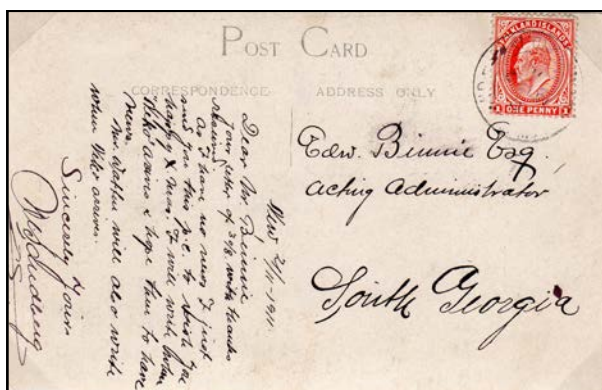 POST CARD
CORRESPONDENCE
ADDRESS ONLY
FALKLAND ISLANDS
ONE PENNY
Edw. Binnie Esq.
Acting Administrator
South Georgia
1911.
Dear Mr. Binnie
Your letter of 30/8 with thanks
As I have no news I just
send you this p.c. to wish you
happy X mas. I will write when
arrives & hope then to have
news.
Mr. will also write
when arrives.
Sincerely Yours